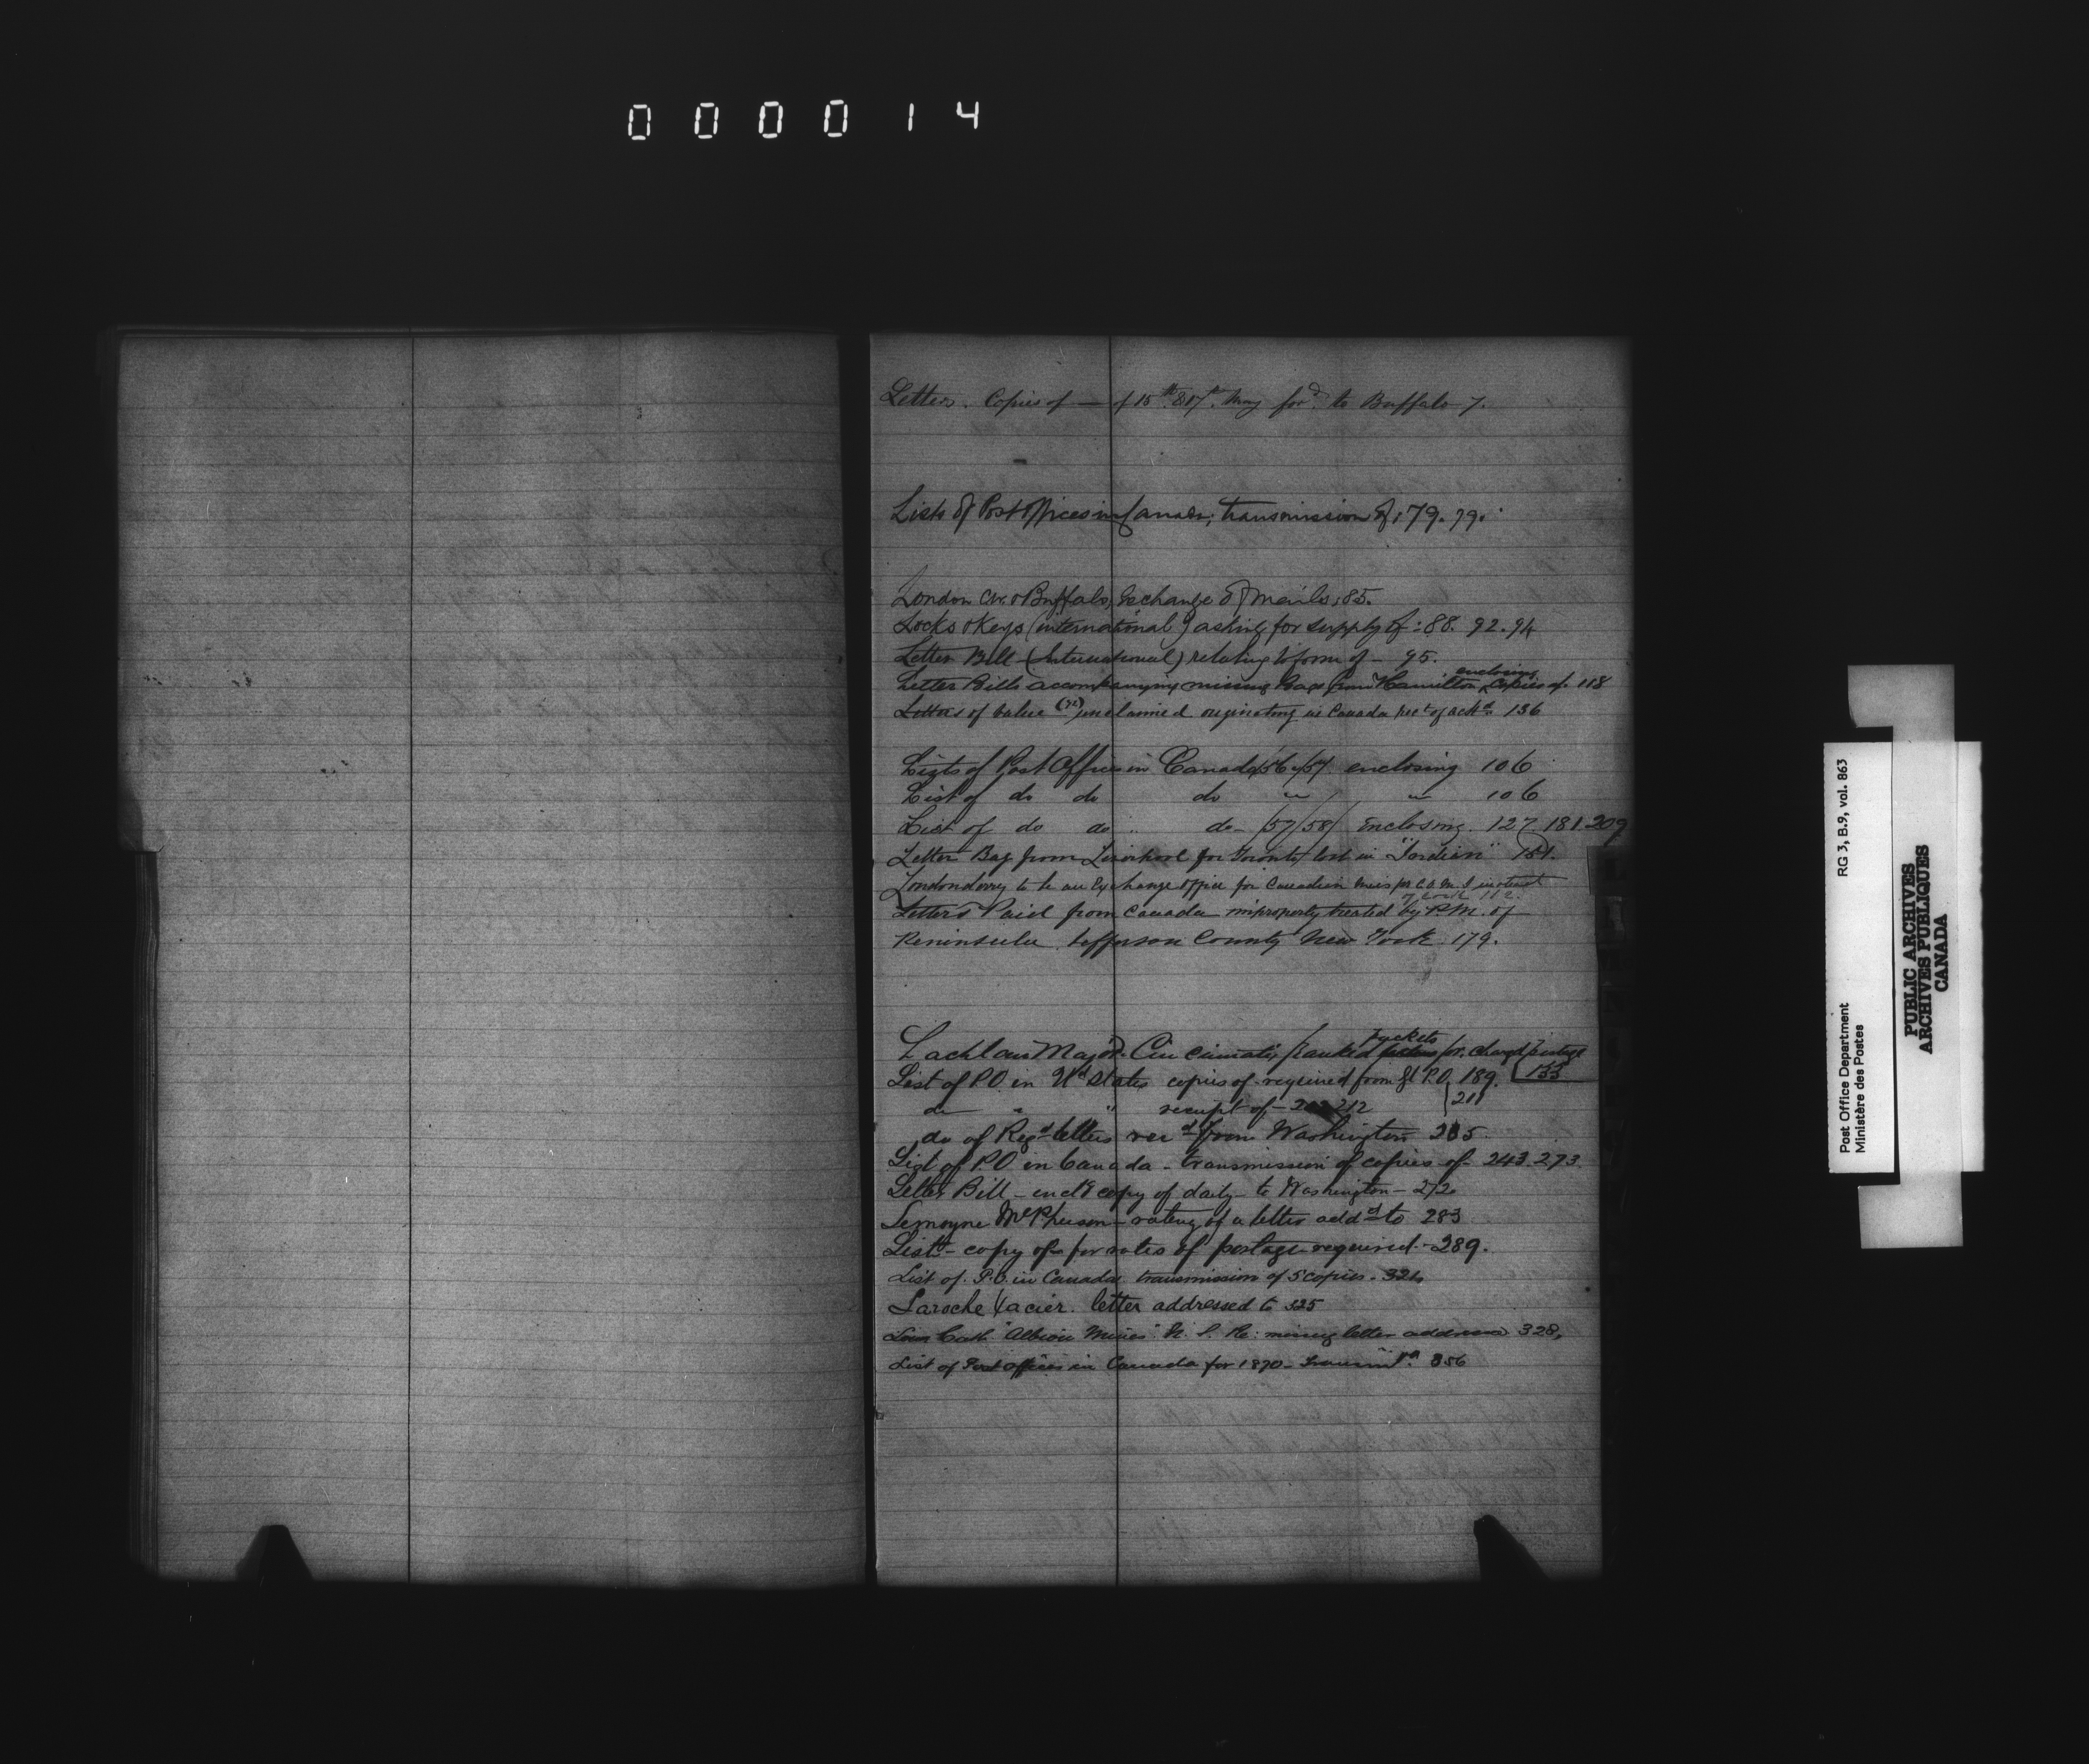 000014
Letters. Copies of — of 15th & 17th May ford. to Buffalo 7.
Lists of Post Offices in Canada; transmission of: 79. 79.
London C.W. & Buffalo, exchange of mails; 85.
Locks & Keys (international) asking for supply of: 88. 92. 94
Letter Bill (International) relating to form of — 95.
Letter Bills accompanying missing Bags from Hamilton, enclosing Copies of. 118
Letters of value (72) unclaimed originating in Canada rect of ackd. 136
Lists of Post Offices in Canada /56 & /57 enclosing 106
List of do do do " " 106
List of do do do — /57/58/ Enclosing. 127. 181. 209
Letter Bag from Liverpool for Toronto lost in "Indian" 151.
Londonderry to be an Exchange office for Canadian Mails pr C.O.M.S instead
of Cork 112.
Letters Paid from Canada improperly treated by P.M. of
Peninsula, Jefferson County New York. 179.
Lachlan Major. Cincinnati, franked packets for, charged postage
133
List of P.O. in Ud States copies of required from Gl P.O. 189.
211
do " " receipt of — 212
do of Regd letters recd from Washington 215
List of P.O in Canada — transmission of copies of — 243. 273.
Letter Bill — encl'g copy of daily — to Washington — 272
Lemoyne McPherson — rating of a letter addd to 283
List — copy of — for rates of postage required — 289.
List of P.O. in Canada transmission of 5 copies. 321.
Laroche Xacier. letter addressed to 325
Cash "Albion Mines" N. S. Re: missing letter address 328,
List of Post Offices in Canada for 1870 — 356
Post Office Department RG 3, B.9, vol. 863
Ministère des Postes
PUBLIC ARCHIVES
ARCHIVES PUBLIQUES
CANADA